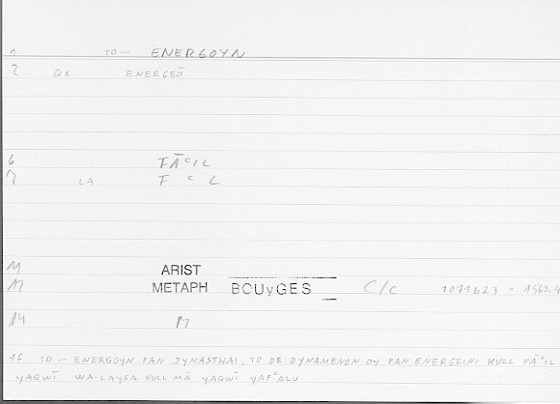 1 TO-- ENERGOYN
2 QX ENERGEŌ
6 FĀᶜIL
7 LA F ᶜ L
11 ARIST
12 METAPH BOUyGES C/c 1071b23 - 1563.4
14 M
16 TO -- ENERGOYN PAN DYNASTHAI, TO DE DYNAMENON OY PAN ENERGEIN: KULL FĀᶜIL
yAQWĪ WA-LAySA KULL MĀ yAQWĪ yAFᶜALU